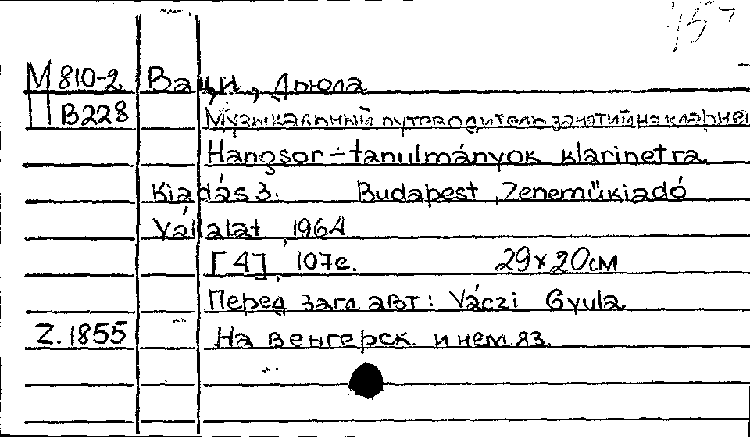 М 810-2 Ваци, Дьюла
П В228 Музыкальный путеводитель занятий на кларне
Hangsor-tanulmányok klarinetra.
Kiadás 3. Budapest, Zeneműkiadó
Vállalat, 1964
[4], 107с. 29х20см
Перед загл. авт: Váczi Gyula
Z.1855 На венгерск. и нем. яз.